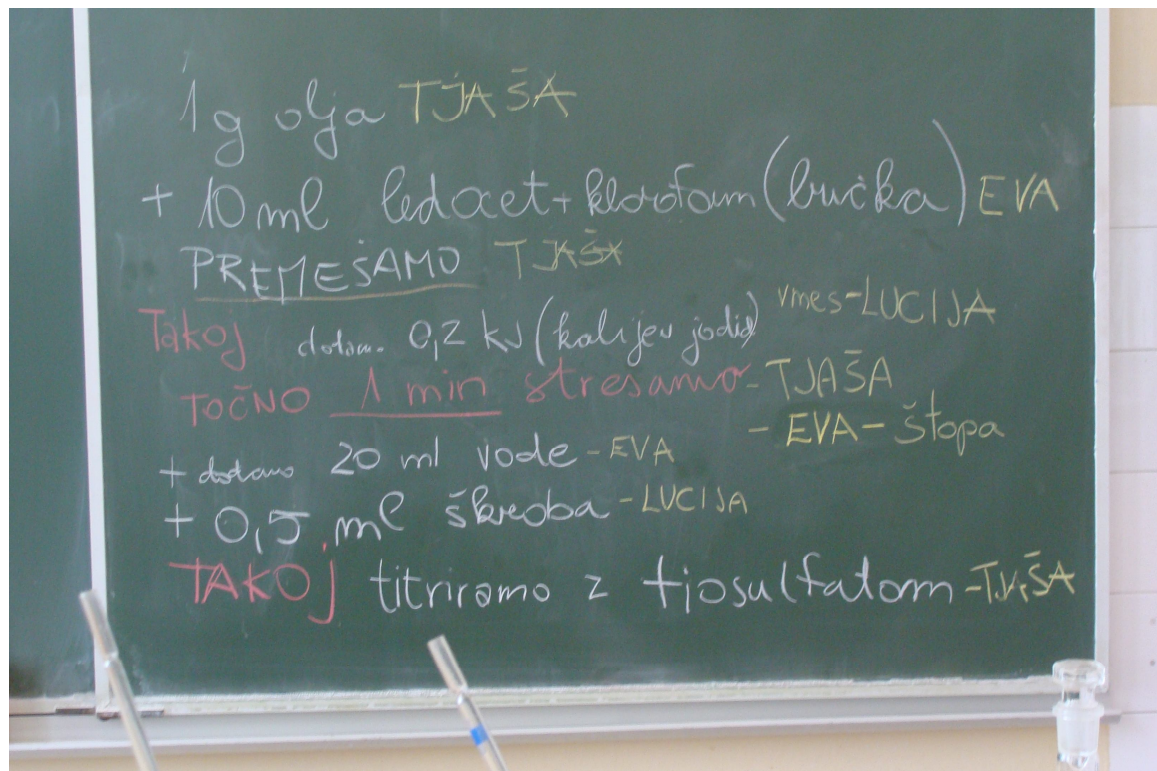 1g olja TJAŠA
+ 10 ml ledocet + kloroform (bučka) EVA
PREMEŠAMO TJAŠA
Takoj dodam. 0,2 KJ (kalijev jodid) vmes-LUCIJA
TOČNO 1 min stresamo - TJAŠA
- EVA - štopa
+ dodamo 20 ml vode - EVA
+ 0,5 ml škroba - LUCIJA
TAKOJ titriramo z tiosulfatom - TJAŠA